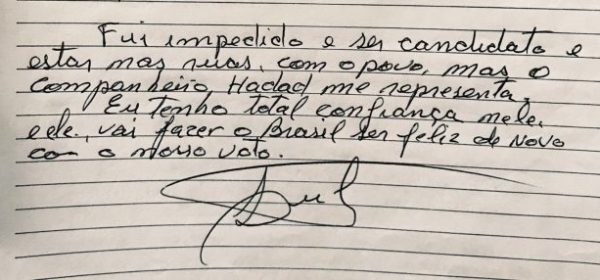 Fui impedido e ser candidato e
estar nas ruas, com o povo, mas o
companheiro, Hadad me representa,
Eu tenho total confiança nele,
e ele, vai fazer o Brasil ser feliz de novo
com o nosso voto.